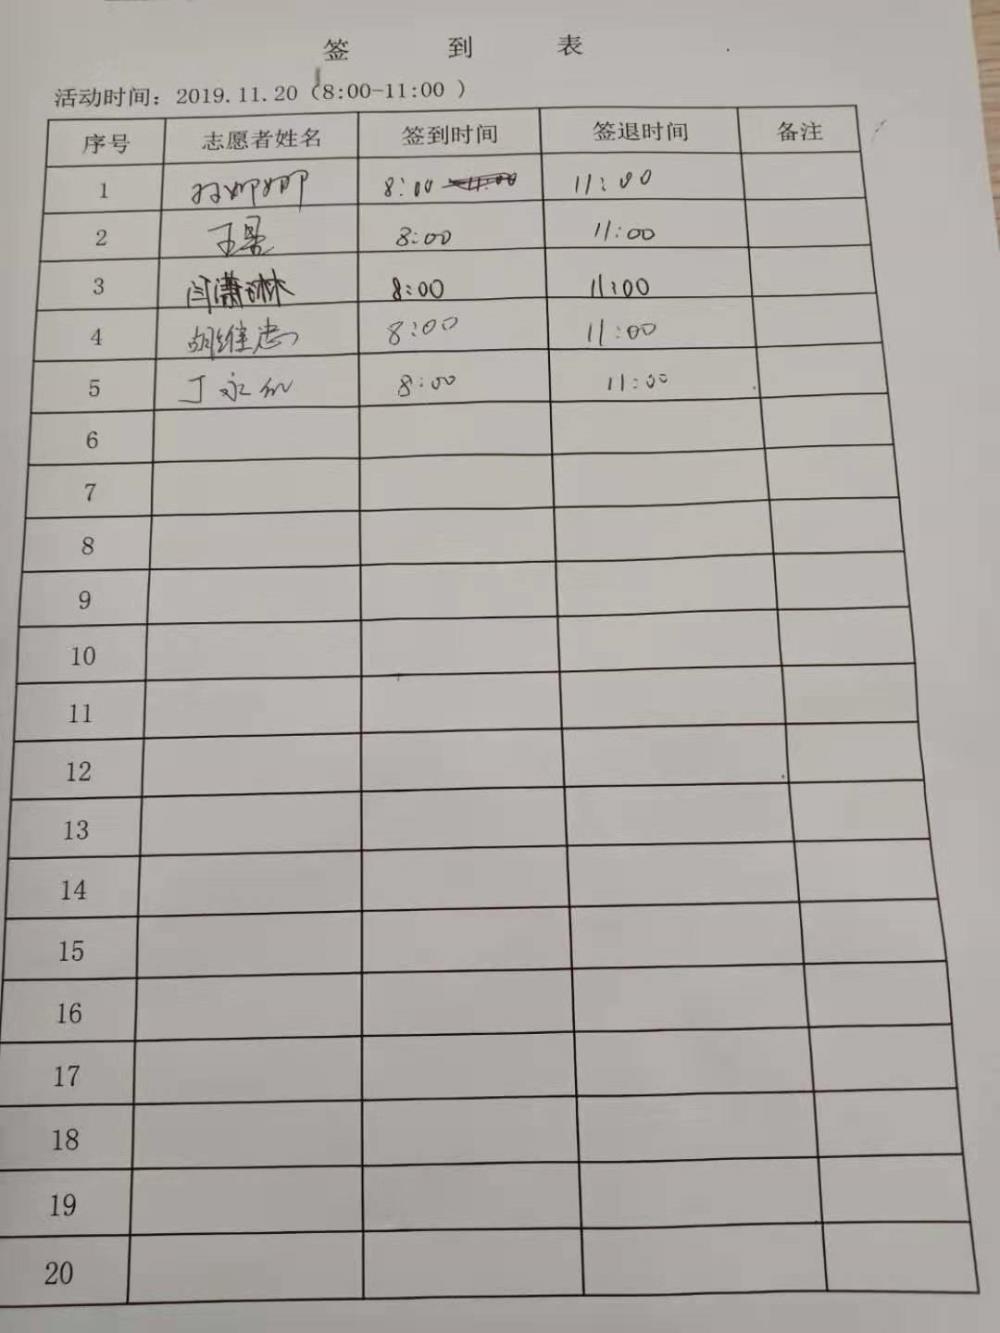 签 到 表
活动时间：2019.11.20（8:00-11:00 ）
序号 志愿者姓名 签到时间 签退时间 备注
1 孙娜娜 8:00 11:00
2 王晷 8:00 11:00
3 闫潇琳 8:00 11:00
4 胡维忠 8:00 11:00
5 丁永红 8:00 11:00
6
7
8
9
10
11
12
13
14
15
16
17
18
19
20